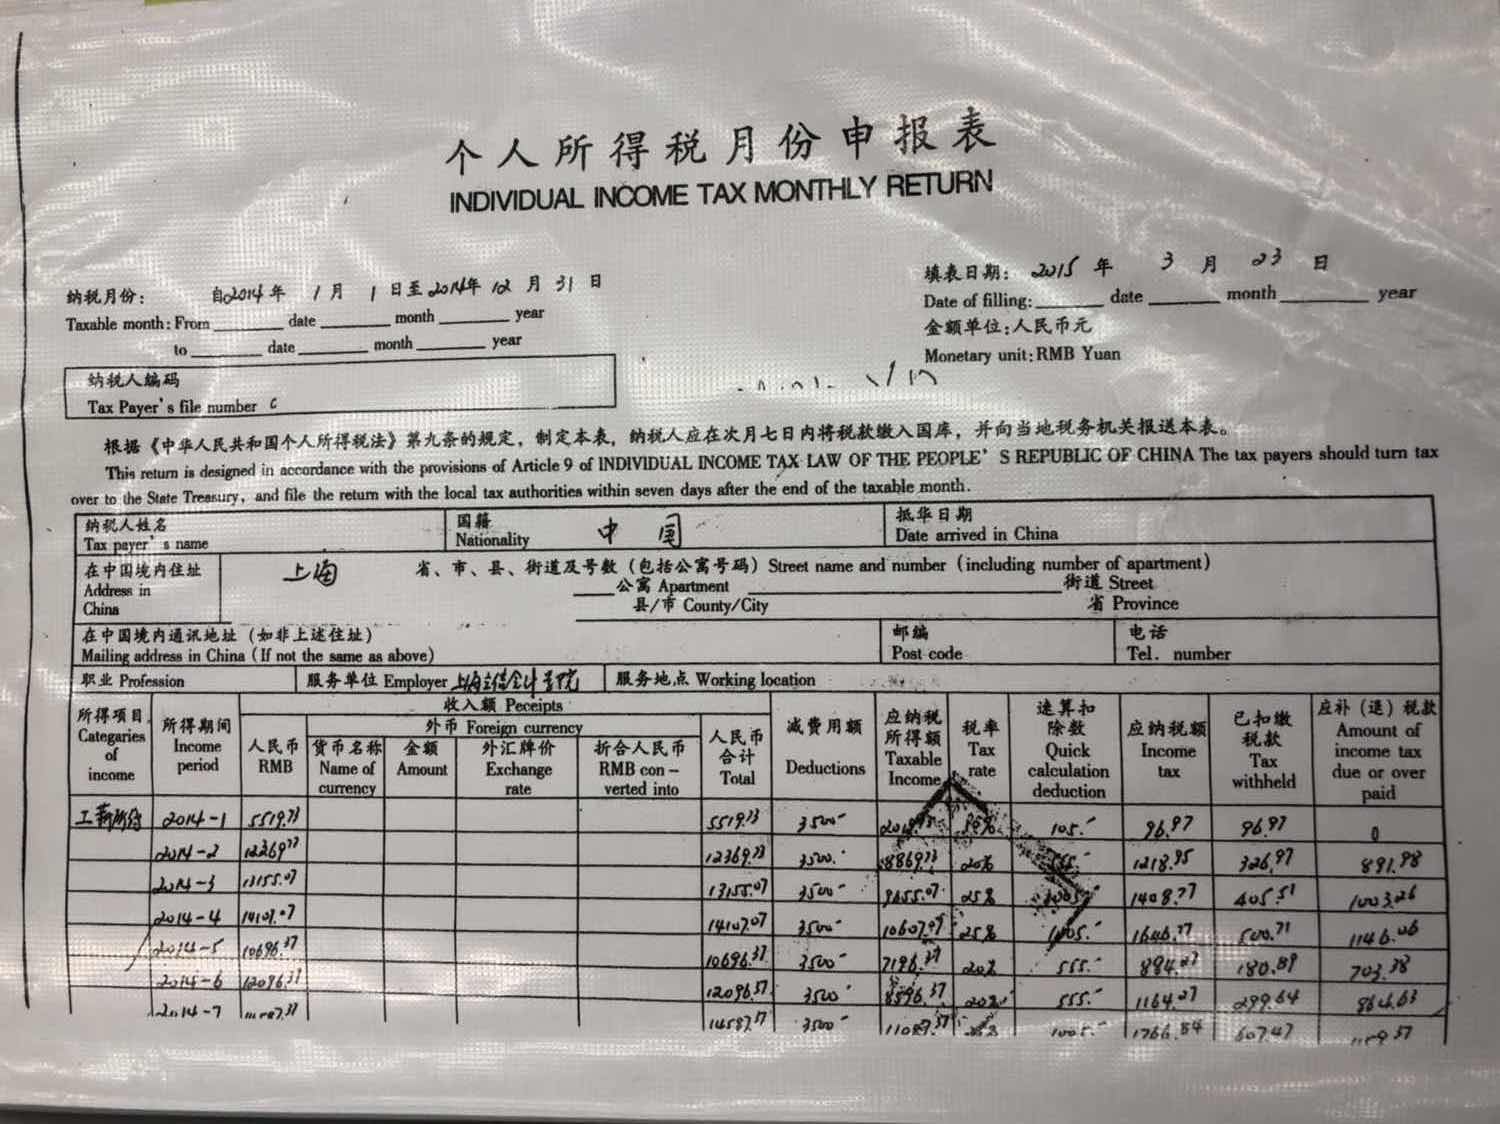 个人所得税月份申报表
INDIVIDUAL INCOME TAX MONTHLY RETURN
纳税月份: 自2014年 1月 1日至2014年 12月 31日
Taxable month: From date month year
to date month year
填表日期: 2015年 3月 23日
Date of filling: date month year
金额单位:人民币元
Monetary unit: RMB Yuan
纳税人编码
Tax Payer's file number
根据《中华人民共和国个人所得税法》第九条的规定,制定本表,纳税人应在次月七日内将税款缴入国库,并向当地税务机关报送本表。
This return is designed in accordance with the provisions of Article 9 of INDIVIDUAL INCOME TAX LAW OF THE PEOPLE'S REPUBLIC OF CHINA The tax payers should turn tax
over to the State Treasury, and file the return with the local tax authorities within seven days after the end of the taxable month.
纳税人姓名 国籍 中国 抵华日期
Tax payer's name Nationality Date arrived in China
在中国境内住址 上海 省、市、县、街道及号数(包括公寓号码) Street name and number (including number of apartment)
Address in 公寓 Apartment 街道 Street
China 县/市 County/City 省 Province
在中国境内通讯地址(如非上述住址) 邮编 电话
Mailing address in China (If not the same as above) Post code Tel. number
职业 Profession 服务单位 Employer 上海立信会计学院 服务地点 Working location
所得项目 Categaries of income
所得期间 Income period
收入额 Peceipts
人民币 RMB
外币 Foreign currency
货币名称 Name of currency
金额 Amount
外汇牌价 Exchange rate
折合人民币 RMB con-verted into
人民币合计 Total
减费用额 Deductions
应纳税所得额 Taxable Income
税率 Tax rate
速算扣除数 Quick calculation deduction
应纳税额 Income tax
已扣缴税款 Tax withheld
应补(退)税款 Amount of income tax due or over paid
工薪所得 2014-1 5519.73 5519.73 3500- 105.- 96.97 96.97 0
2014-2 12369.73 12369.73 3500.- 8869.73 20% 1218.95 326.97 891.98
2014-3 13155.07 13155.07 3500- 9655.07 25% 1408.77 405.51 1003.26
2014-4 14107.07 14107.07 3500- 10607.07 25% 1005.- 1646.77 500.71 1146.06
2014-5 10696.37 10696.37 3500- 7196.37 20% 555.- 884.27 180.89 703.38
2014-6 12096.37 12096.37 3500- 8596.37 20% 555.- 1164.27 299.64 864.63
2014-7 14587.37 3500- 11087.37 1005.- 1766.84 607.47